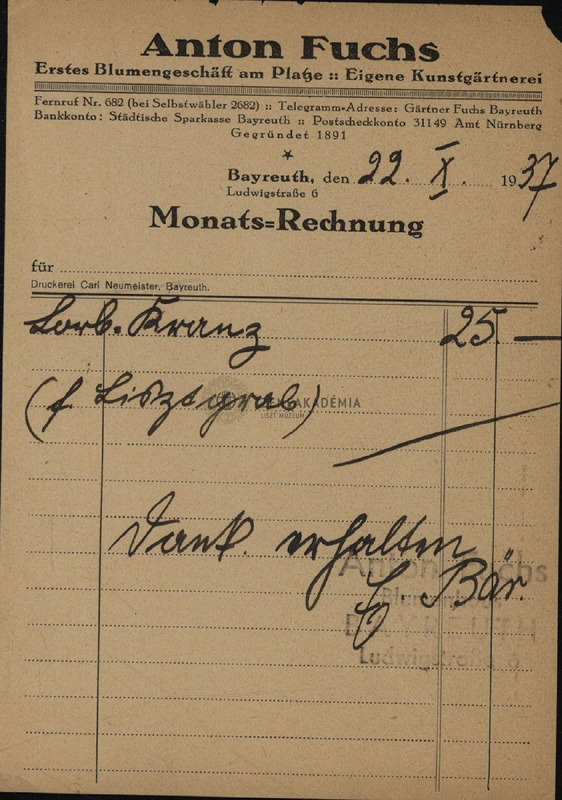 Anton Fuchs
Erstes Blumengeschäft am Platze :: Eigene Kunstgärtnerei
Fernruf Nr. 682 (bei Selbstwähler 2682) :: Telegramm-Adresse: Gärtner Fuchs Bayreuth
Bankkonto: Städtische Sparkasse Bayreuth :: Postscheckkonto 31149 Amt Nürnberg
Gegründet 1891
Bayreuth, den 22. X. 1937
Ludwigstraße 6
Monats=Rechnung
für
Druckerei Carl Neumeister, Bayreuth.
Lorb. Kranz 25 —
(f Lisztgrab)
ZENEAKADÉMIA
LISZT MÚZEUM
Dank. erhalten
Bär.
Anton Fuchs
BAYREUTH
Ludwigstraße 6